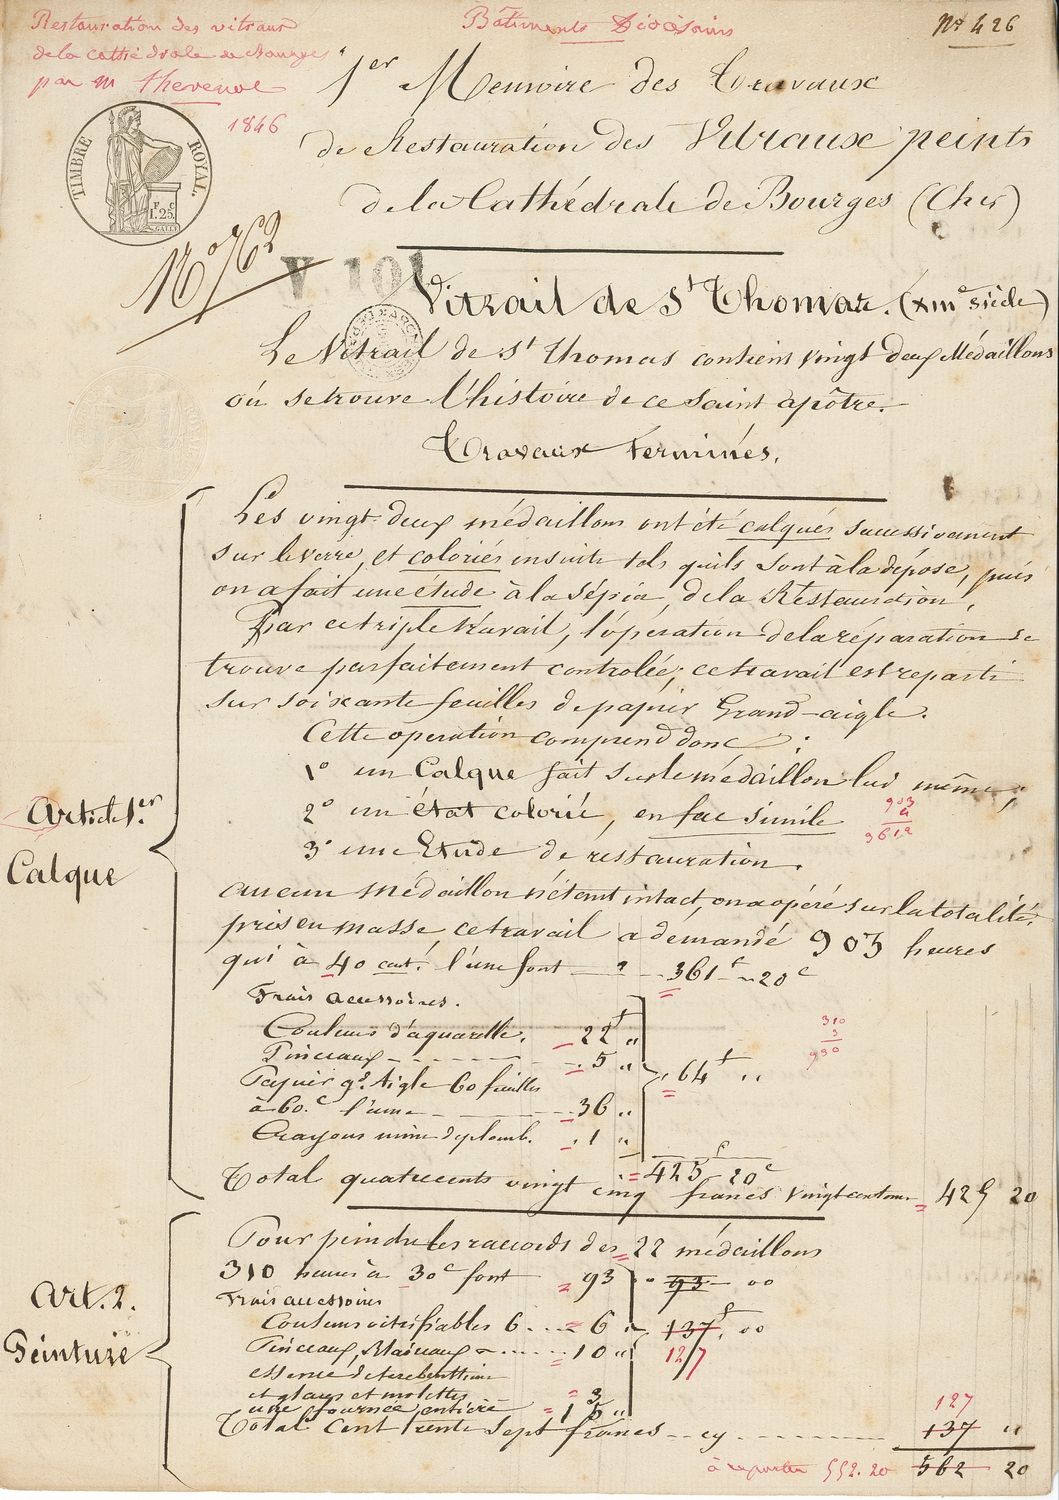 Restauration des vitraux
de la cathédrale de Bourges
par M Thevenot
1846
Bâtiments Diocésains
No 426
1er Memoire des Travaux
de Restauration des Vitraux peints
de la Cathédrale de Bourges (Cher)
TIMBRE ROYAL.
F. C
1.25.
No 762
V 101
Vitrail de St Thomas. (XIIIe siècle)
Le Vitrail de St Thomas contient vingt deux Médaillons
où se trouve l'histoire de ce saint apôtre.
Travaux terminés.
Les vingt deux médaillons ont été calqués successivement
sur le verre, et coloriés ensuite tels qu'ils sont à la dépose, puis
on a fait une étude à la Sépia, de la Restauration.
Par ce triple travail, l'opération de la réparation se
trouve parfaitement controlée; ce travail est reparti
sur soixante feuilles de papier Grand-aigle.
Cette operation comprend donc :
1o un Calque fait sur le médaillon lui même;
2o un état colorié, en fac simile
3o une Etude de restauration.
903
4
361,2
Article 1er.
Calque
aucun médaillon n'étant intact, on a opéré sur la totalité.
pris en masse, ce travail a demandé 903 heures
qui à 40 cent. l'une font 361f 20c
Frais accessoires.
Couleurs d'aquarelle. 22f "
Pinceaux 5 "
64f "
Papier gd. Aigle 60 feuilles
à 60.c l'une 36 "
Crayons mine de plomb. 1 "
310
3
930
425f 20c
Total quatrecents vingt cinq francs vingt centimes 425 20
Art. 2.
Peinture
Pour peindre les raccords des 22 médaillons
310 heures à 30c font 93 93 00
Frais accessoires
Couleurs vitrifiables 6 6 " 137f. 00
Pinceaux, 10 " 127
essence de terebenthine
et glaces et molettes 3
une journée entière 15 "
127
Total Cent trente sept francs cy 137 "
à reporter 552.20 562 20